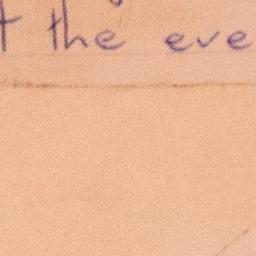 t the eve